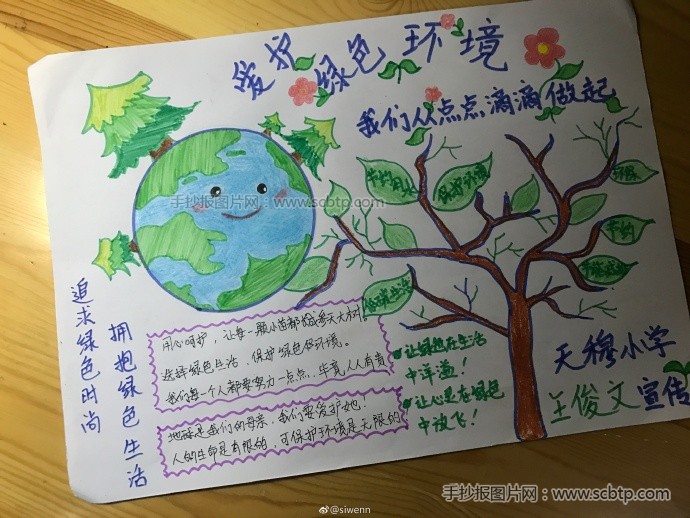 爱护绿色环境
我们从点点滴滴做起
手抄报图片网:www.scbtp.com
节约用水
保护环境
环保
节约
低碳生活
追求绿色时尚
拥抱绿色生活
用心呵护,让每一颗小苗都长成参天大树。
选择绿色生活、保护绿色环境。
我们每一个人都要努力一点点、毕竟人人有责
地球是我们的母亲、我们要爱护她!
人的生命是有限的,可保护环境是无限的
让绿色在生活
中洋溢!
让心灵在绿色
中放飞!
天穆小学
王俊文 宣传
手抄报图片网:www.scbtp.com
@siwenn